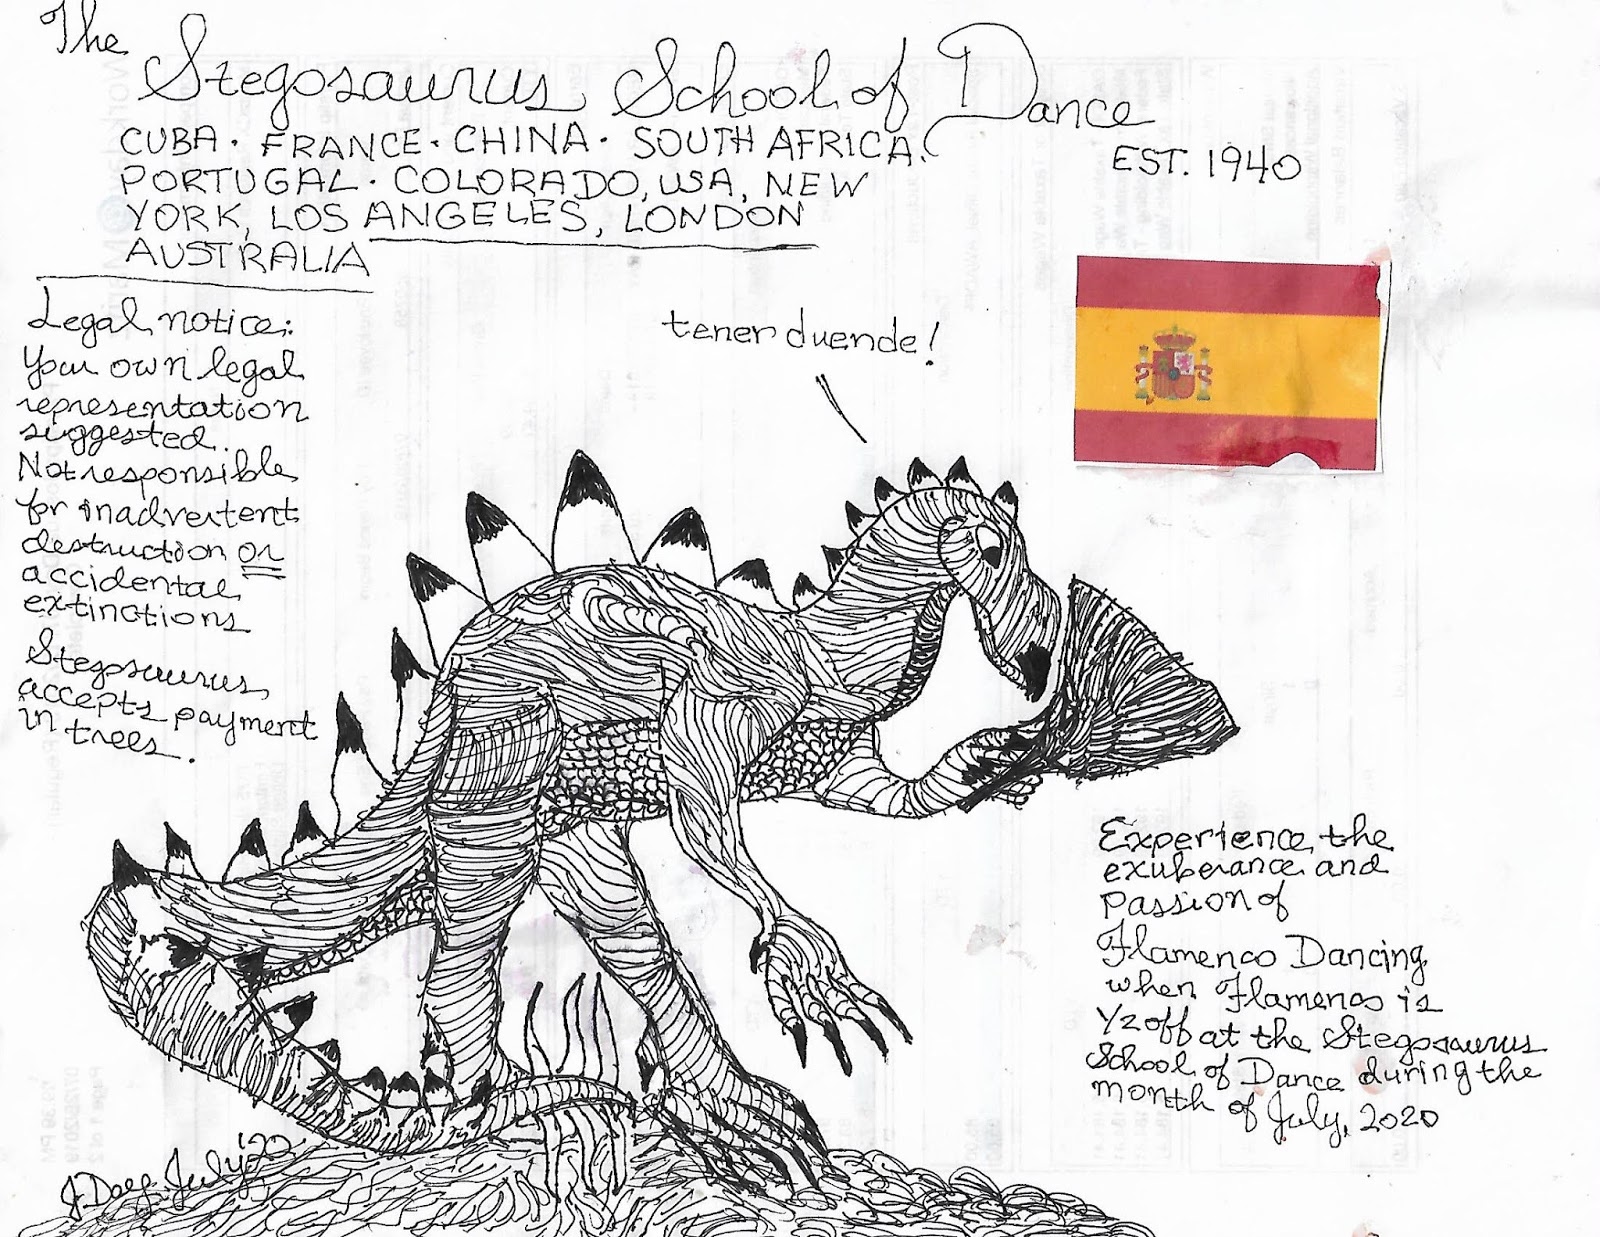 The
Stegosaurus School of Dance
CUBA · FRANCE · CHINA · SOUTH AFRICA ·
PORTUGAL · COLORADO, USA, NEW
YORK, LOS ANGELES, LONDON
AUSTRALIA
EST. 1940
Legal notice:
Your own legal
representation
suggested.
Not responsible
for inadvertent
destruction or
accidental
extinctions
Stegosaurus
accepts payment
in trees.
tener duende!
Experience the
exuberance and
passion of
Flamenco Dancing
when Flamenco is
1/2 off at the Stegosaurus
School of Dance during the
month of July, 2020
July '20